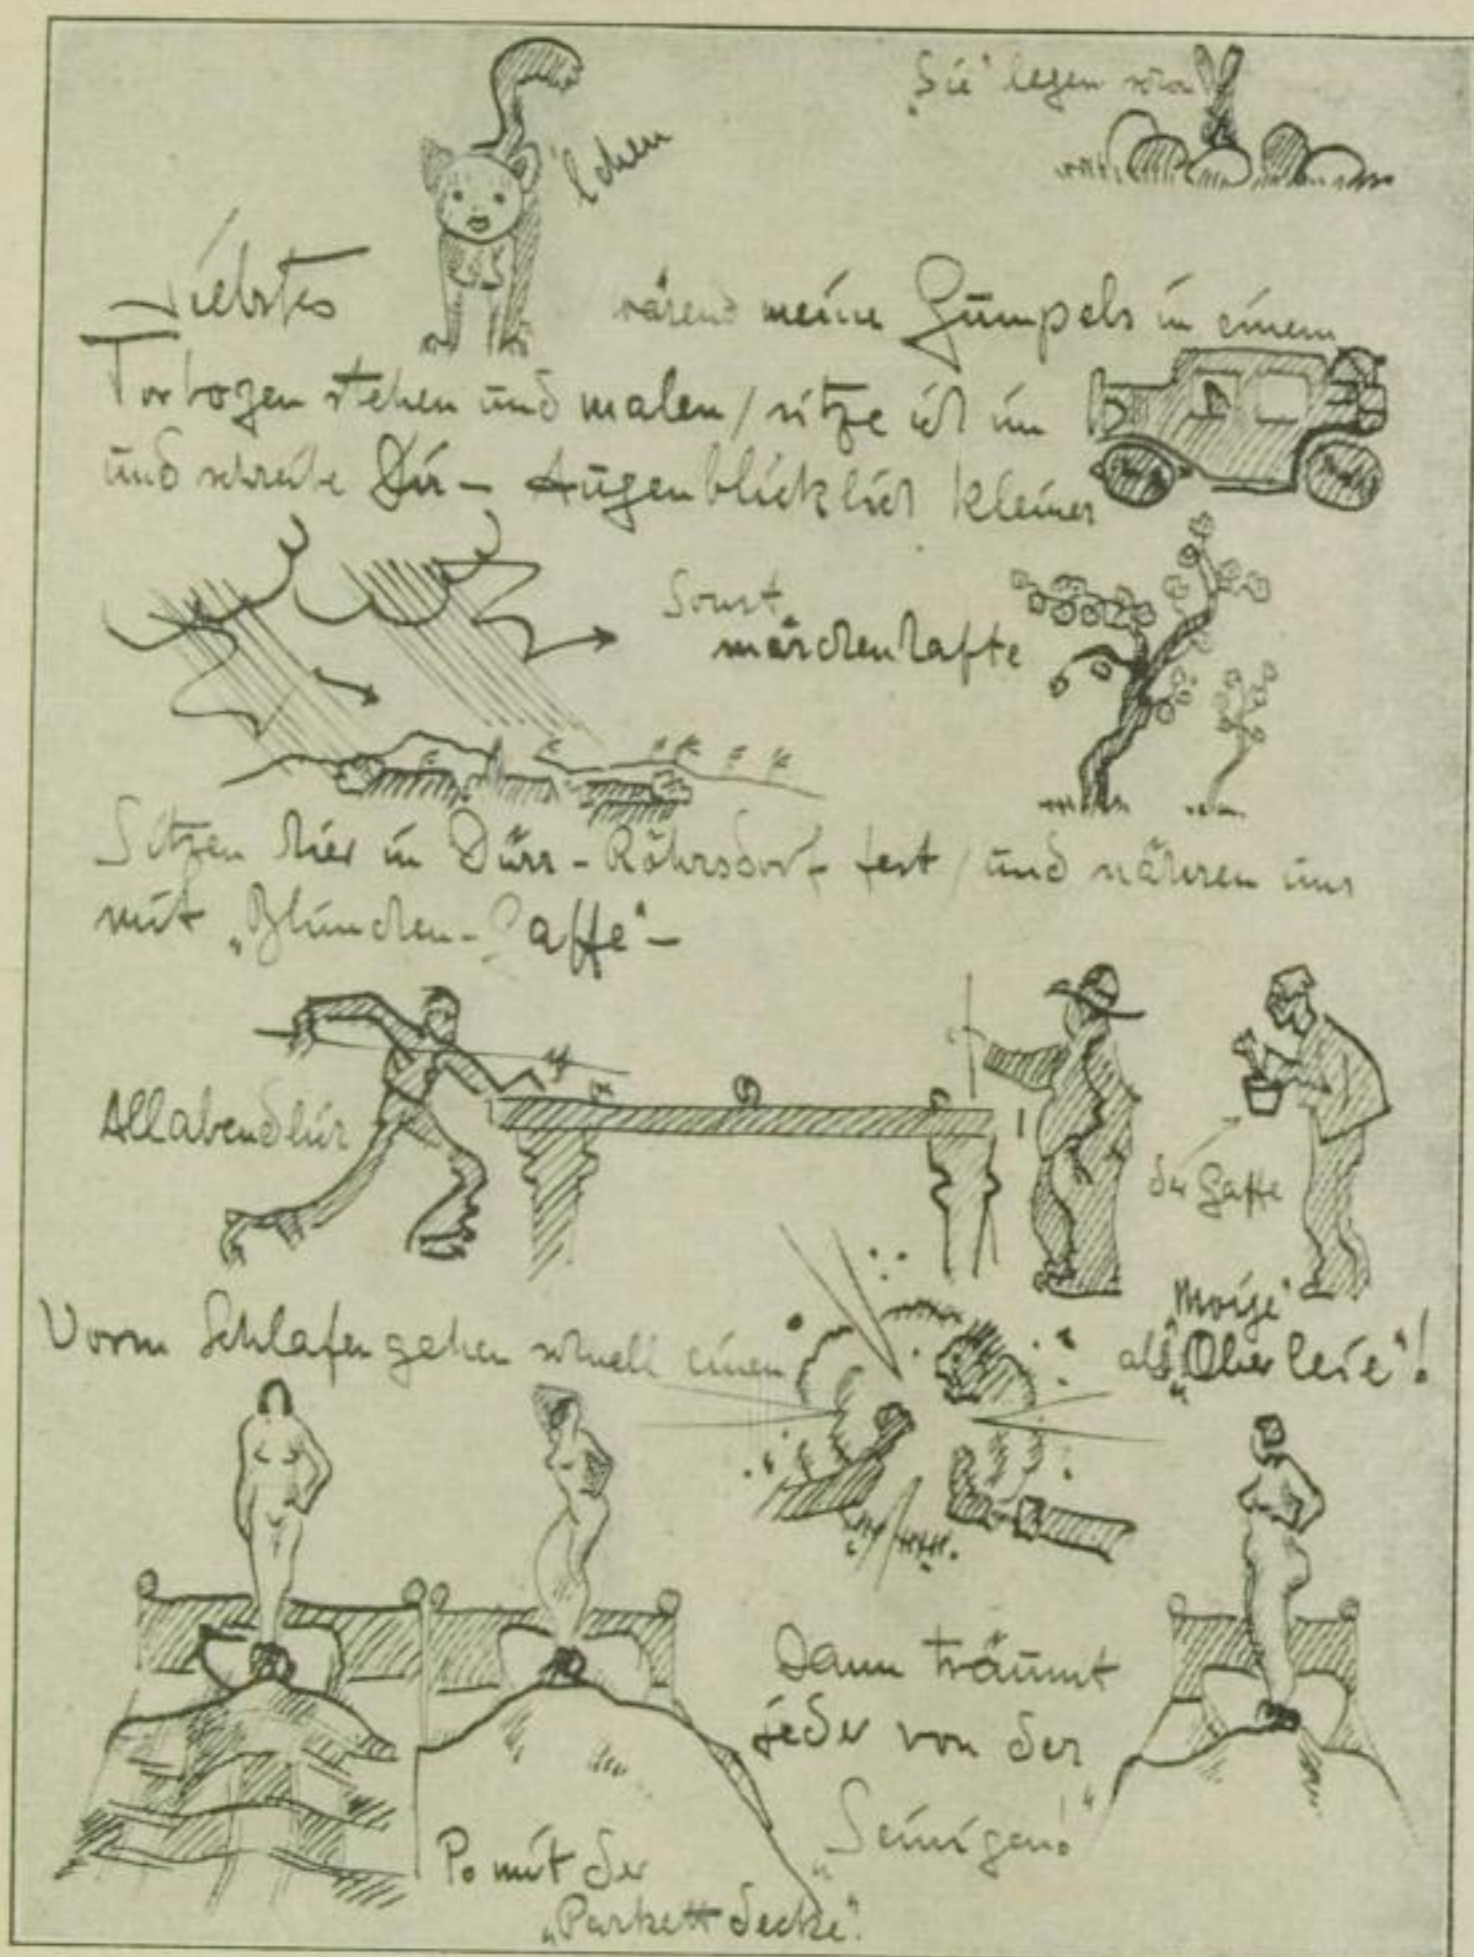 „Sie“ legen schon
'lchen
Liebstes
wärend meine Gumpels in einem
Torbogen stehen und malen / sitze ich im
und schreibe Dir – Augenblicklich kleiner
Sonst
märchenhafte
Sitzen hier in Dürr-Röhrsdorf fest / und nähren uns
mit „Blümchen-Gaffe“ –
Allabendlich
der Gaffe
„Moije“
Vorm Schlafen gehen schnell einen
als „Ober
Dann träumt
jeder von der
„Seinigen!“
Po mit der
„Parkettdecke“.